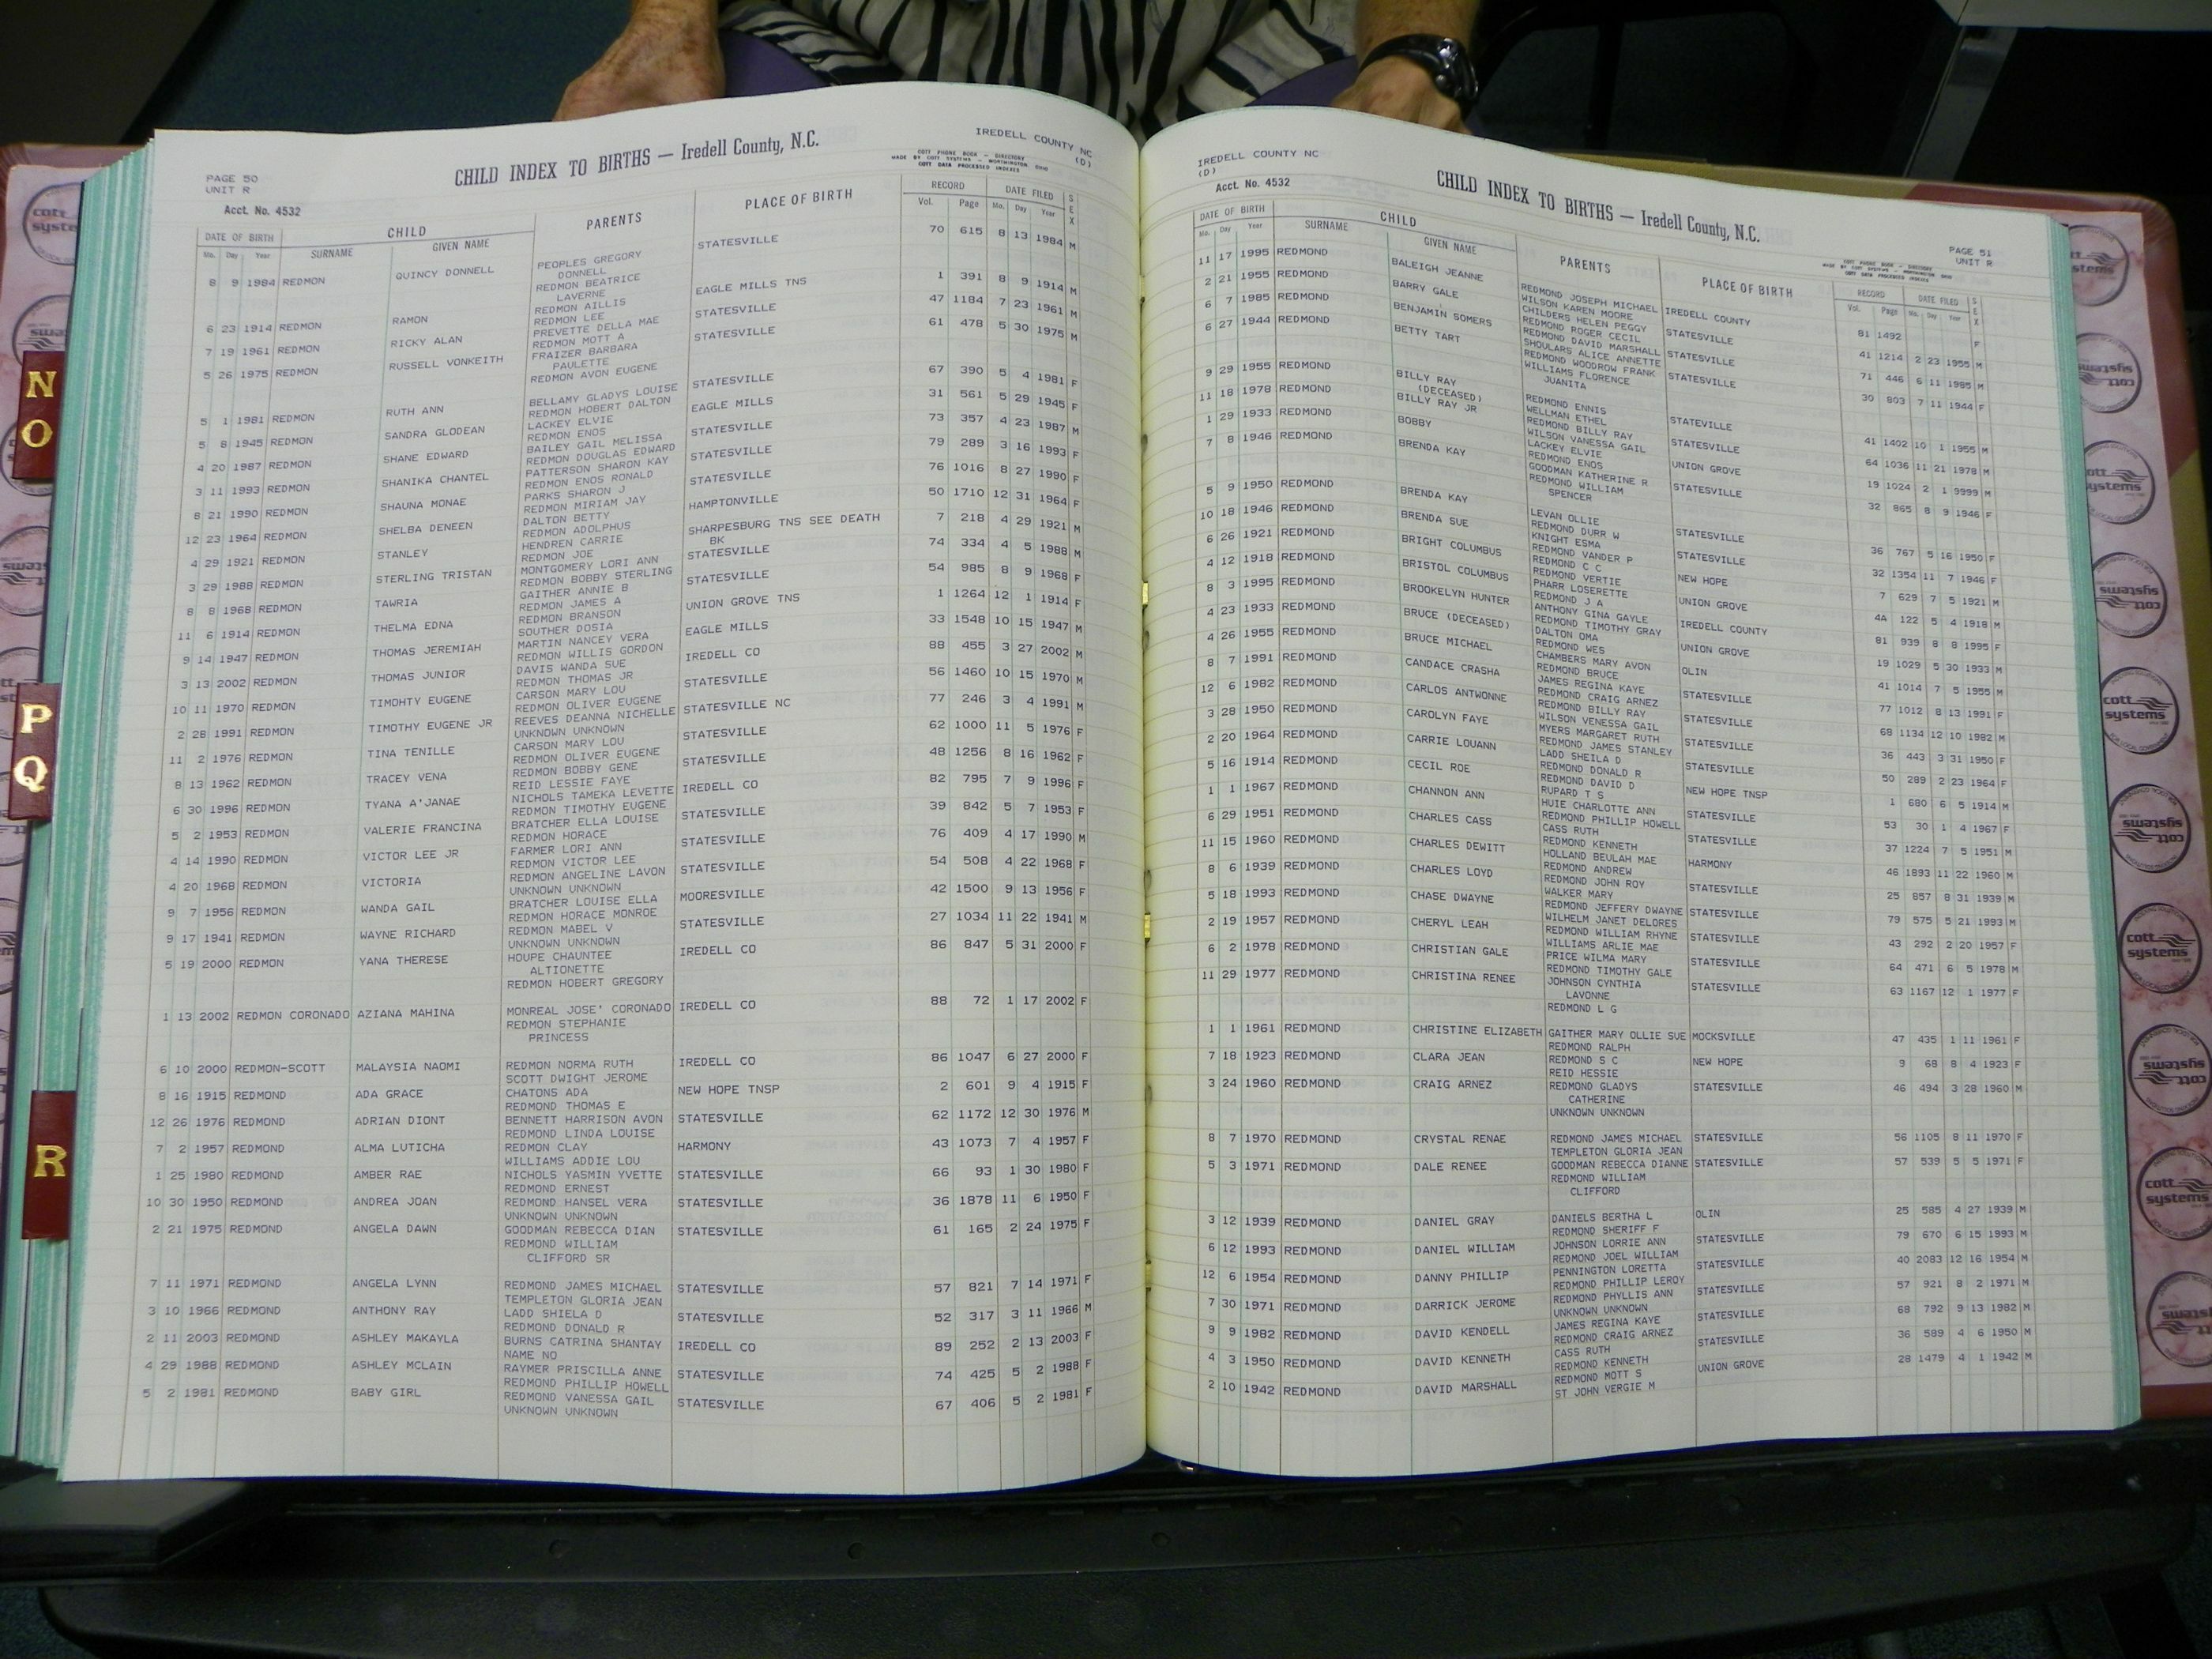 PAGE 50
UNIT R
CHILD INDEX TO BIRTHS — Iredell County, N.C.
IREDELL COUNTY NC
(D)
COTT PHONE BOOK - DIRECTORY
MADE BY COTT SYSTEMS - WORTHINGTON OHIO
COTT DATA PROCESSED INDEXES
Acct. No. 4532
DATE OF BIRTH CHILD PARENTS PLACE OF BIRTH RECORD DATE FILED SEX
Mo. Day Year SURNAME GIVEN NAME Vol. Page Mo. Day Year
8 9 1984 REDMON QUINCY DONNELL PEOPLES GREGORY STATESVILLE 70 615 8 13 1984 M
DONNELL
REDMON BEATRICE
LAVERNE
6 23 1914 REDMON RAMON REDMON AILLIS EAGLE MILLS TNS 1 391 8 9 1914 M
REDMON LEE
7 19 1961 REDMON RICKY ALAN PREVETTE DELLA MAE STATESVILLE 47 1184 7 23 1961 M
REDMON MOTT A
5 26 1975 REDMON RUSSELL VONKEITH FRAIZER BARBARA STATESVILLE 61 478 5 30 1975 M
PAULETTE
REDMON AVON EUGENE
5 1 1981 REDMON RUTH ANN BELLAMY GLADYS LOUISE STATESVILLE 67 390 5 4 1981 F
REDMON HOBERT DALTON
5 8 1945 REDMON SANDRA GLODEAN LACKEY ELVIE EAGLE MILLS 31 561 5 29 1945 F
REDMON ENOS
4 20 1987 REDMON SHANE EDWARD BAILEY GAIL MELISSA STATESVILLE 73 357 4 23 1987 M
REDMON DOUGLAS EDWARD
3 11 1993 REDMON SHANIKA CHANTEL PATTERSON SHARON KAY STATESVILLE 79 289 3 16 1993 F
REDMON ENOS RONALD
8 21 1990 REDMON SHAUNA MONAE PARKS SHARON J STATESVILLE 76 1016 8 27 1990 F
REDMON MIRIAM JAY
12 23 1964 REDMON SHELBA DENEEN DALTON BETTY HAMPTONVILLE 50 1710 12 31 1964 F
REDMON ADOLPHUS
4 29 1921 REDMON STANLEY HENDREN CARRIE SHARPESBURG TNS SEE DEATH 7 218 4 29 1921 M
REDMON JOE BK
3 29 1988 REDMON STERLING TRISTAN MONTGOMERY LORI ANN STATESVILLE 74 334 4 5 1988 M
REDMON BOBBY STERLING
8 8 1968 REDMON TAWRIA GAITHER ANNIE B STATESVILLE 54 985 8 9 1968 F
REDMON JAMES A
11 6 1914 REDMON THELMA EDNA REDMON BRANSON UNION GROVE TNS 1 1264 12 1 1914 F
SOUTHER DOSIA
9 14 1947 REDMON THOMAS JEREMIAH MARTIN NANCEY VERA EAGLE MILLS 33 1548 10 15 1947 M
REDMON WILLIS GORDON
3 13 2002 REDMON THOMAS JUNIOR DAVIS WANDA SUE IREDELL CO 88 455 3 27 2002 M
REDMON THOMAS JR
10 11 1970 REDMON TIMOHTY EUGENE CARSON MARY LOU STATESVILLE 56 1460 10 15 1970 M
REDMON OLIVER EUGENE
2 28 1991 REDMON TIMOTHY EUGENE JR REEVES DEANNA NICHELLE STATESVILLE NC 77 246 3 4 1991 M
UNKNOWN UNKNOWN
11 2 1976 REDMON TINA TENILLE CARSON MARY LOU STATESVILLE 62 1000 11 5 1976 F
REDMON OLIVER EUGENE
8 13 1962 REDMON TRACEY VENA REDMON BOBBY GENE STATESVILLE 48 1256 8 16 1962 F
REID LESSIE FAYE
6 30 1996 REDMON TYANA A'JANAE NICHOLS TAMEKA LEVETTE IREDELL CO 82 795 7 9 1996 F
REDMON TIMOTHY EUGENE
5 2 1953 REDMON VALERIE FRANCINA BRATCHER ELLA LOUISE STATESVILLE 39 842 5 7 1953 F
REDMON HORACE
4 14 1990 REDMON VICTOR LEE JR FARMER LORI ANN STATESVILLE 76 409 4 17 1990 M
REDMON VICTOR LEE
4 20 1968 REDMON VICTORIA REDMON ANGELINE LAVON STATESVILLE 54 508 4 22 1968 F
UNKNOWN UNKNOWN
9 7 1956 REDMON WANDA GAIL BRATCHER LOUISE ELLA MOORESVILLE 42 1500 9 13 1956 F
REDMON HORACE MONROE
9 17 1941 REDMON WAYNE RICHARD REDMON MABEL V STATESVILLE 27 1034 11 22 1941 M
UNKNOWN UNKNOWN
5 19 2000 REDMON YANA THERESE HOUPE CHAUNTEE IREDELL CO 86 847 5 31 2000 F
ALTIONETTE
REDMON HOBERT GREGORY
1 13 2002 REDMON CORONADO AZIANA MAHINA MONREAL JOSE' CORONADO IREDELL CO 88 72 1 17 2002 F
REDMON STEPHANIE
PRINCESS
6 10 2000 REDMON-SCOTT MALAYSIA NAOMI REDMON NORMA RUTH IREDELL CO 86 1047 6 27 2000 F
SCOTT DWIGHT JEROME
8 16 1915 REDMOND ADA GRACE CHATONS ADA NEW HOPE TNSP 2 601 9 4 1915 F
REDMOND THOMAS E
12 26 1976 REDMOND ADRIAN DIONT BENNETT HARRISON AVON STATESVILLE 62 1172 12 30 1976 M
REDMOND LINDA LOUISE
7 2 1957 REDMOND ALMA LUTICHA REDMON CLAY HARMONY 43 1073 7 4 1957 F
WILLIAMS ADDIE LOU
1 25 1980 REDMOND AMBER RAE NICHOLS YASMIN YVETTE STATESVILLE 66 93 1 30 1980 F
REDMOND ERNEST
10 30 1950 REDMOND ANDREA JOAN REDMOND HANSEL VERA STATESVILLE 36 1878 11 6 1950 F
UNKNOWN UNKNOWN
2 21 1975 REDMOND ANGELA DAWN GOODMAN REBECCA DIAN STATESVILLE 61 165 2 24 1975 F
REDMOND WILLIAM
CLIFFORD SR
7 11 1971 REDMOND ANGELA LYNN REDMOND JAMES MICHAEL STATESVILLE 57 821 7 14 1971 F
TEMPLETON GLORIA JEAN
3 10 1966 REDMOND ANTHONY RAY LADD SHIELA D STATESVILLE 52 317 3 11 1966 M
REDMOND DONALD R
2 11 2003 REDMOND ASHLEY MAKAYLA BURNS CATRINA SHANTAY IREDELL CO 89 252 2 13 2003 F
NAME NO
4 29 1988 REDMOND ASHLEY MCLAIN RAYMER PRISCILLA ANNE STATESVILLE 74 425 5 2 1988 F
REDMOND PHILLIP HOWELL
5 2 1981 REDMOND BABY GIRL REDMOND VANESSA GAIL STATESVILLE 67 406 5 2 1981 F
UNKNOWN UNKNOWN
IREDELL COUNTY NC
(D)
CHILD INDEX TO BIRTHS — Iredell County, N.C.
PAGE 51
UNIT R
Acct. No. 4532
COTT PHONE BOOK - DIRECTORY
MADE BY COTT SYSTEMS - WORTHINGTON OHIO
COTT DATA PROCESSED INDEXES
DATE OF BIRTH CHILD PARENTS PLACE OF BIRTH RECORD DATE FILED SEX
Mo. Day Year SURNAME GIVEN NAME Vol. Page Mo. Day Year
11 17 1995 REDMOND BALEIGH JEANNE REDMOND JOSEPH MICHAEL IREDELL COUNTY 81 1492 F
WILSON KAREN MOORE
2 21 1955 REDMOND BARRY GALE CHILDERS HELEN PEGGY STATESVILLE 41 1214 2 23 1955 M
REDMOND ROGER CECIL
6 7 1985 REDMOND BENJAMIN SOMERS REDMOND DAVID MARSHALL STATESVILLE 71 446 6 11 1985 M
SHOULARS ALICE ANNETTE
6 27 1944 REDMOND BETTY TART REDMOND WOODROW FRANK STATESVILLE 30 803 7 11 1944 F
WILLIAMS FLORENCE
JUANITA
9 29 1955 REDMOND BILLY RAY REDMOND ENNIS STATEVILLE 41 1402 10 1 1955 M
(DECEASED) WELLMAN ETHEL
11 18 1978 REDMOND BILLY RAY JR REDMOND BILLY RAY STATESVILLE 64 1036 11 21 1978 M
WILSON VANESSA GAIL
1 29 1933 REDMOND BOBBY LACKEY ELVIE UNION GROVE 19 1024 2 1 9999 M
REDMOND ENOS
7 8 1946 REDMOND BRENDA KAY GOODMAN KATHERINE R STATESVILLE 32 865 8 9 1946 F
REDMOND WILLIAM
SPENCER
5 9 1950 REDMOND BRENDA KAY LEVAN OLLIE STATESVILLE 36 767 5 16 1950 F
REDMOND DURR W
10 18 1946 REDMOND BRENDA SUE KNIGHT ESMA STATESVILLE 32 1354 11 7 1946 F
REDMOND VANDER P
6 26 1921 REDMOND BRIGHT COLUMBUS REDMOND C C NEW HOPE 7 629 7 5 1921 M
REDMOND VERTIE
4 12 1918 REDMOND BRISTOL COLUMBUS PHARR LOSERETTE UNION GROVE 4A 122 5 4 1918 M
REDMOND J A
8 3 1995 REDMOND BROOKELYN HUNTER ANTHONY GINA GAYLE IREDELL COUNTY 81 939 8 8 1995 F
REDMOND TIMOTHY GRAY
4 23 1933 REDMOND BRUCE (DECEASED) DALTON OMA UNION GROVE 19 1029 5 30 1933 M
REDMOND WES
4 26 1955 REDMOND BRUCE MICHAEL CHAMBERS MARY AVON OLIN 41 1014 7 5 1955 M
REDMOND BRUCE
8 7 1991 REDMOND CANDACE CRASHA JAMES REGINA KAYE STATESVILLE 77 1012 8 13 1991 F
REDMOND CRAIG ARNEZ
12 6 1982 REDMOND CARLOS ANTWONNE REDMOND BILLY RAY STATESVILLE 68 1134 12 10 1982 M
WILSON VENESSA GAIL
3 28 1950 REDMOND CAROLYN FAYE MYERS MARGARET RUTH STATESVILLE 36 443 3 31 1950 F
REDMOND JAMES STANLEY
2 20 1964 REDMOND CARRIE LOUANN LADD SHEILA D STATESVILLE 50 289 2 23 1964 F
REDMOND DONALD R
5 16 1914 REDMOND CECIL ROE REDMOND DAVID D NEW HOPE TNSP 1 680 6 5 1914 M
RUPARD T S
1 1 1967 REDMOND CHANNON ANN HUIE CHARLOTTE ANN STATESVILLE 53 30 1 4 1967 F
REDMOND PHILLIP HOWELL
6 29 1951 REDMOND CHARLES CASS CASS RUTH STATESVILLE 37 1224 7 5 1951 M
REDMOND KENNETH
11 15 1960 REDMOND CHARLES DEWITT HOLLAND BEULAH MAE HARMONY 46 1893 11 22 1960 M
REDMOND ANDREW
8 6 1939 REDMOND CHARLES LOYD REDMOND JOHN ROY STATESVILLE 25 857 8 31 1939 M
WALKER MARY
5 18 1993 REDMOND CHASE DWAYNE REDMOND JEFFERY DWAYNE STATESVILLE 79 575 5 21 1993 M
WILHELM JANET DELORES
2 19 1957 REDMOND CHERYL LEAH REDMOND WILLIAM RHYNE STATESVILLE 43 292 2 20 1957 F
WILLIAMS ARLIE MAE
6 2 1978 REDMOND CHRISTIAN GALE PRICE WILMA MARY STATESVILLE 64 471 6 5 1978 M
REDMOND TIMOTHY GALE
11 29 1977 REDMOND CHRISTINA RENEE JOHNSON CYNTHIA STATESVILLE 63 1167 12 1 1977 F
LAVONNE
REDMOND L G
1 1 1961 REDMOND CHRISTINE ELIZABETH GAITHER MARY OLLIE SUE MOCKSVILLE 47 435 1 11 1961 F
REDMOND RALPH
7 18 1923 REDMOND CLARA JEAN REDMOND S C NEW HOPE 9 68 8 4 1923 F
REID HESSIE
3 24 1960 REDMOND CRAIG ARNEZ REDMOND GLADYS STATESVILLE 46 494 3 28 1960 M
CATHERINE
UNKNOWN UNKNOWN
8 7 1970 REDMOND CRYSTAL RENAE REDMOND JAMES MICHAEL STATESVILLE 56 1105 8 11 1970 F
TEMPLETON GLORIA JEAN
5 3 1971 REDMOND DALE RENEE GOODMAN REBECCA DIANNE STATESVILLE 57 539 5 5 1971 F
REDMOND WILLIAM
CLIFFORD
3 12 1939 REDMOND DANIEL GRAY DANIELS BERTHA L OLIN 25 585 4 27 1939 M
REDMOND SHERIFF F
6 12 1993 REDMOND DANIEL WILLIAM JOHNSON LORRIE ANN STATESVILLE 79 670 6 15 1993 M
REDMOND JOEL WILLIAM
12 6 1954 REDMOND DANNY PHILLIP PENNINGTON LORETTA STATESVILLE 40 2083 12 16 1954 M
REDMOND PHILLIP LEROY
7 30 1971 REDMOND DARRICK JEROME REDMOND PHYLLIS ANN STATESVILLE 57 921 8 2 1971 M
UNKNOWN UNKNOWN
9 9 1982 REDMOND DAVID KENDELL JAMES REGINA KAYE STATESVILLE 68 792 9 13 1982 M
REDMOND CRAIG ARNEZ
4 3 1950 REDMOND DAVID KENNETH CASS RUTH STATESVILLE 36 589 4 6 1950 M
REDMOND KENNETH
2 10 1942 REDMOND DAVID MARSHALL REDMOND MOTT S UNION GROVE 28 1479 4 1 1942 M
ST JOHN VERGIE M
N
O
P
Q
R
cott systems
cott systems
cott systems
cott systems
cott systems